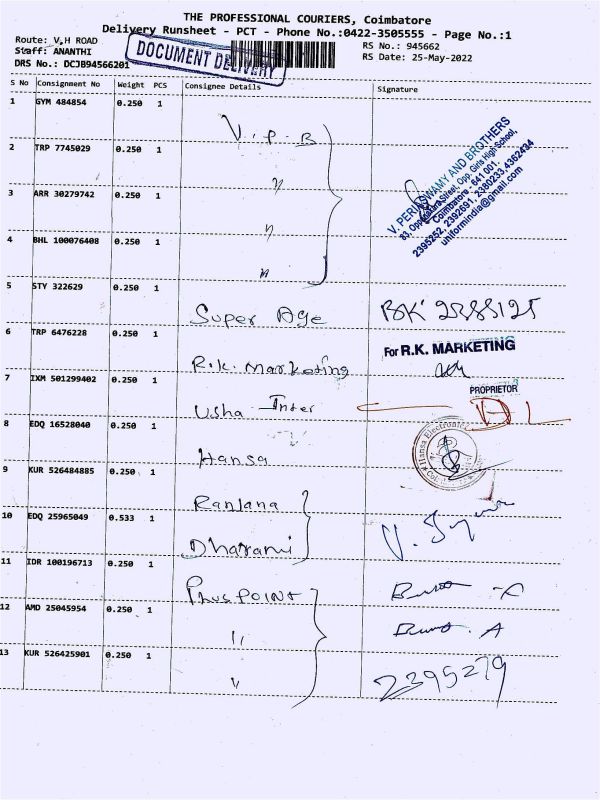 THE PROFESSIONAL COURIERS, Coimbatore
Delivery Runsheet - PCT - Phone No.:0422-3505555 - Page No.:1
Route: V,H ROAD
Staff: ANANTHI
DRS No.: DCJB94566201
DOCUMENT DELIVERY
RS No.: 945662
RS Date: 25-May-2022
S No Consignment No Weight PCS Consignee Details Signature
1 GYM 484854 0.250 1 V.P.B
2 TRP 7745029 0.250 1 "
3 ARR 30279742 0.250 1 "
4 BHL 100076408 0.250 1 "
V. PERIASWAMY AND BROTHERS
Opp. Girls High School,
Coimbatore - 641 001.
2395252, 2392691, 2380233,4362434
uniformindia@gmail.com
5 STY 322629 0.250 1 Super Age
6 TRP 6476228 0.250 1 R.K. Marketing
For R.K. MARKETING
PROPRIETOR
7 IXM 501299402 0.250 1 Usha Inter
8 EDQ 16528040 0.250 1 Hansa
Hansa Electronic
9 KUR 526484885 0.250 1 Ranjana
10 EDQ 25965049 0.533 1 Dharani
11 IDR 100196713 0.250 1 PLUS POINT
12 AMD 25045954 0.250 1 "
13 KUR 526425901 0.250 1 " 2395279